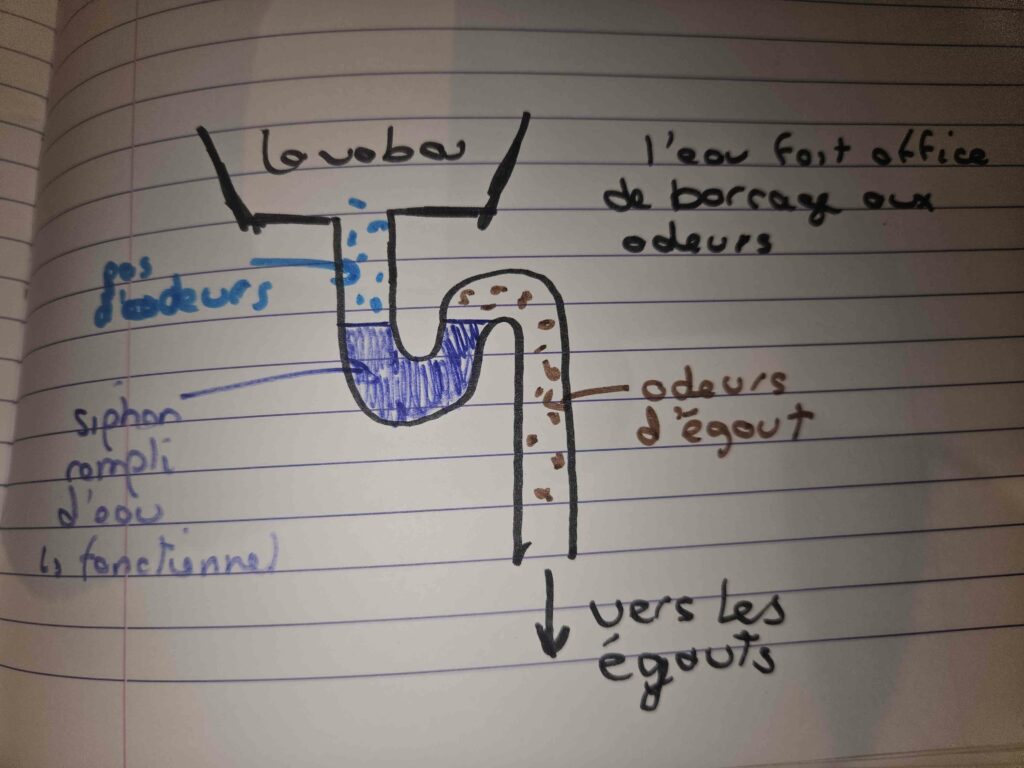 lavabo
l'eau fait office
de barrage aux
odeurs
pas
d'odeurs
siphon
rempli
d'eau
↳ fonctionnel
odeurs
d'égout
vers les
égouts